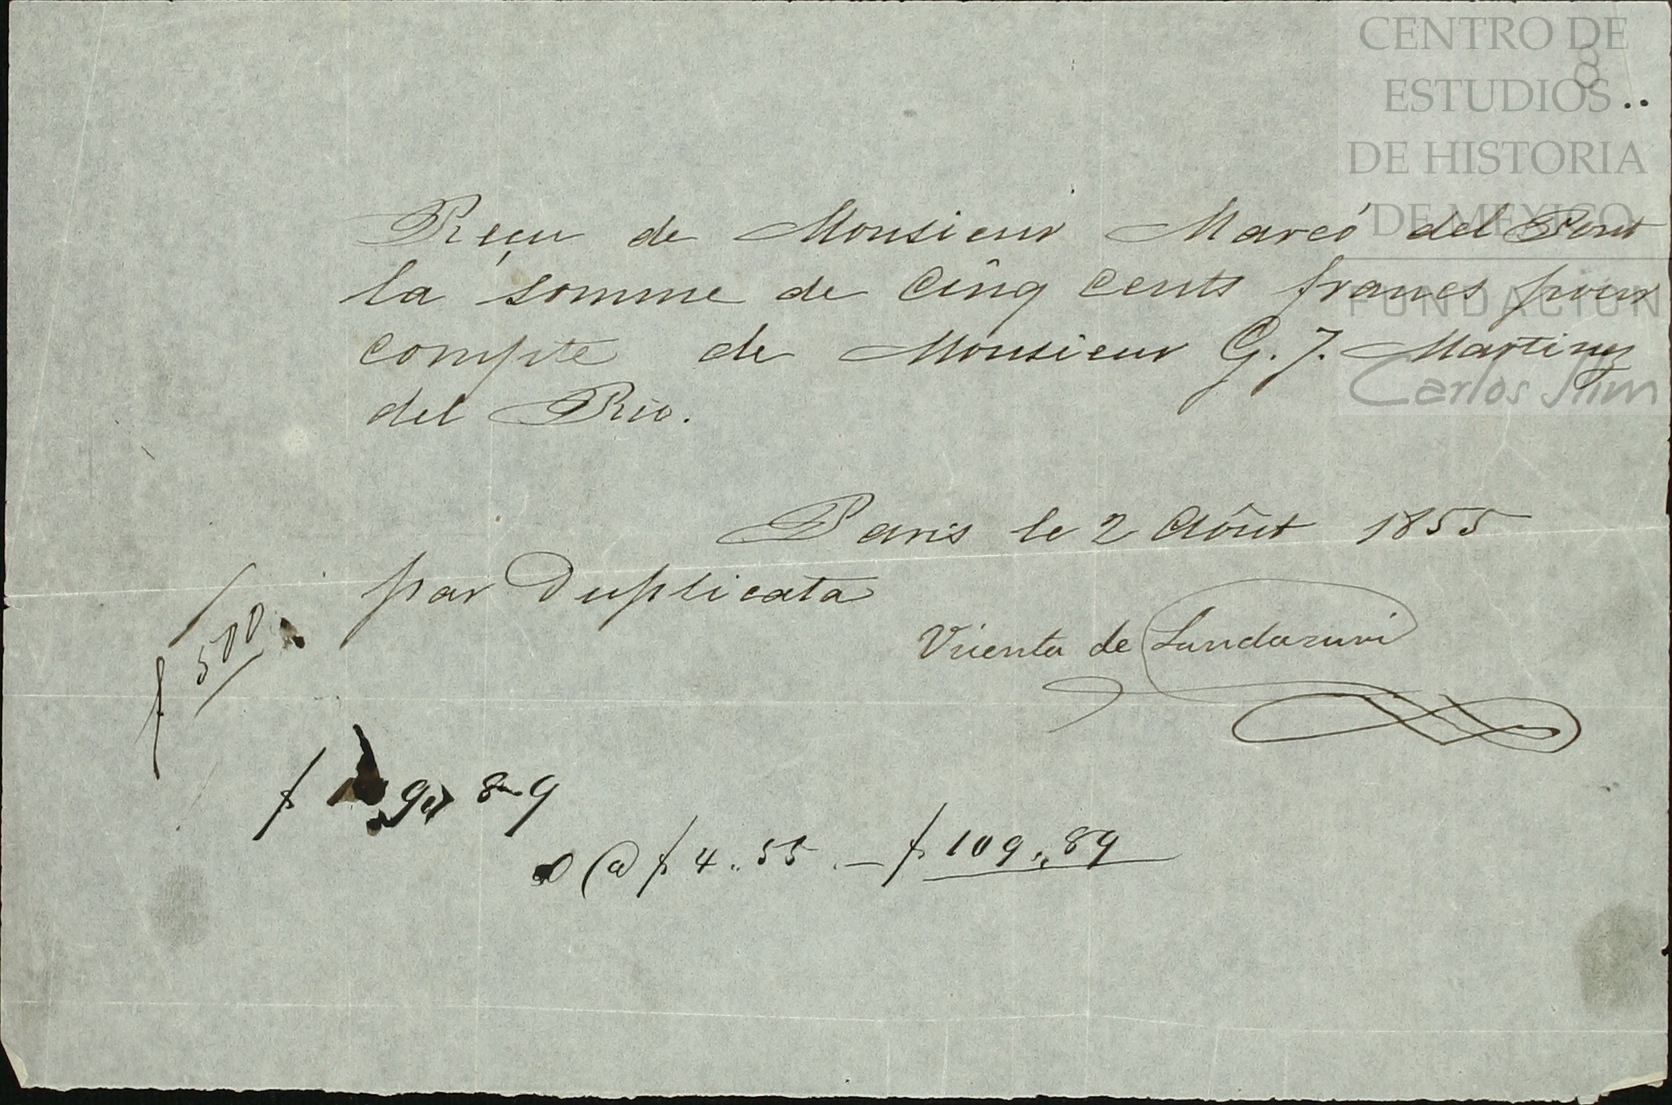 CENTRO DE
ESTUDIOS
DE HISTORIA
DE MEXICO
FUNDACION
Carlos Slim
8
Réçu de Monsieur Marcó del Pont
la somme de Cinq Cents francs pour
Compte de Monsieur G. J. Martinez
del Rio.
Paris le 2 Aôut 1855
par Duplicata
Vicenta de Landazuri
f 500
@ f 4..55 — f 109.,89